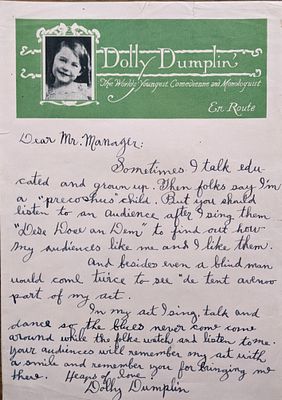 Dolly Dumplin'
The World's Youngest Comedienne and Monologuist
En Route
Dear Mr. Manager:
Sometimes I talk edu-
cated and grown up. Then folks say I'm
a "precoshus" child. But you should
listen to an audience after I sing them
"Dese Dose an Dem" to find out how
my audiences like me and I like them.
And besides even a blind man
would come twice to see "de tent avenoo"
part of my act.
In my act I sing, talk and
dance so the blues never come come
around while the folks watch and listen to me.
Your audiences will remember my act with
a smile and remember you for bringing me
there. Heaps of love.
Dolly Dumplin